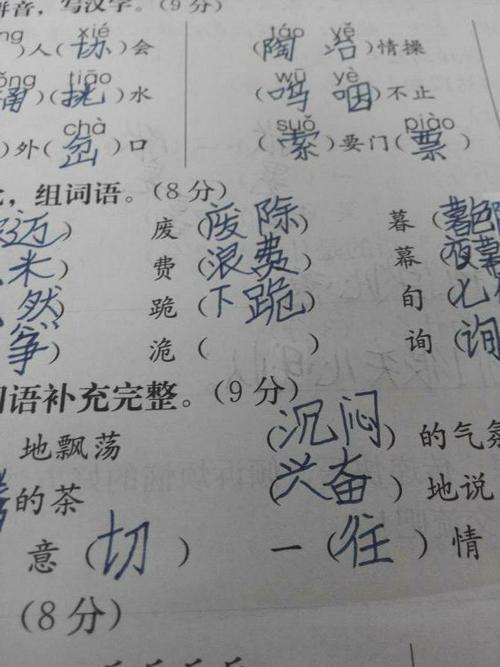 拼音,写汉字。(9分)
xié táo yě
人(协)会 (陶冶)情操
tiāo wū yè
(挑)水 (呜咽)不止
chà suǒ piào
外(岔)口 (索)要门(票)
,组词语。(8分)
迈) 废(废除) 暮(暮色
米) 费(浪费) 幕(夜幕
然) 跪(下跪) 旬(
筝) 诡( ) 询(询
词语补充完整。(9分)
地飘荡 (沉闷)的气氛
的茶 (兴奋)地说
意(切) 一(往)情
(8分)